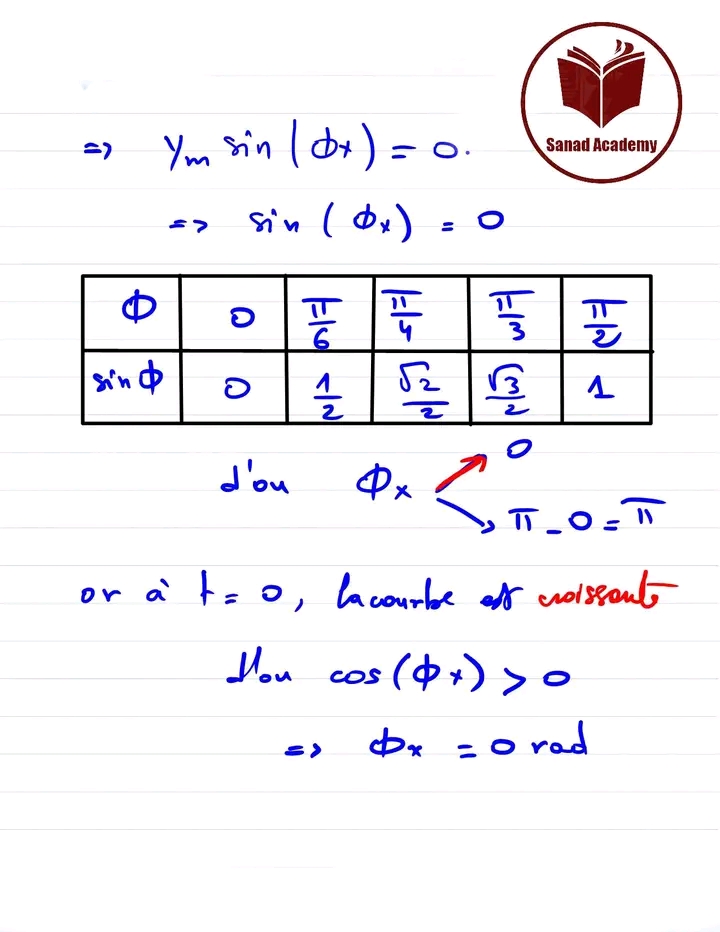 Sanad Academy
=> Ym sin (ϕx) = 0.
=> sin (ϕx) = 0
ϕ 0 π/6 π/4 π/3 π/2
sin ϕ 0 1/2 √2/2 √3/2 1
0
d'ou ϕx
π - 0 = π
or à t = 0, la courbe est croissante
d'ou cos (ϕx) > 0
=> ϕx = 0 rad